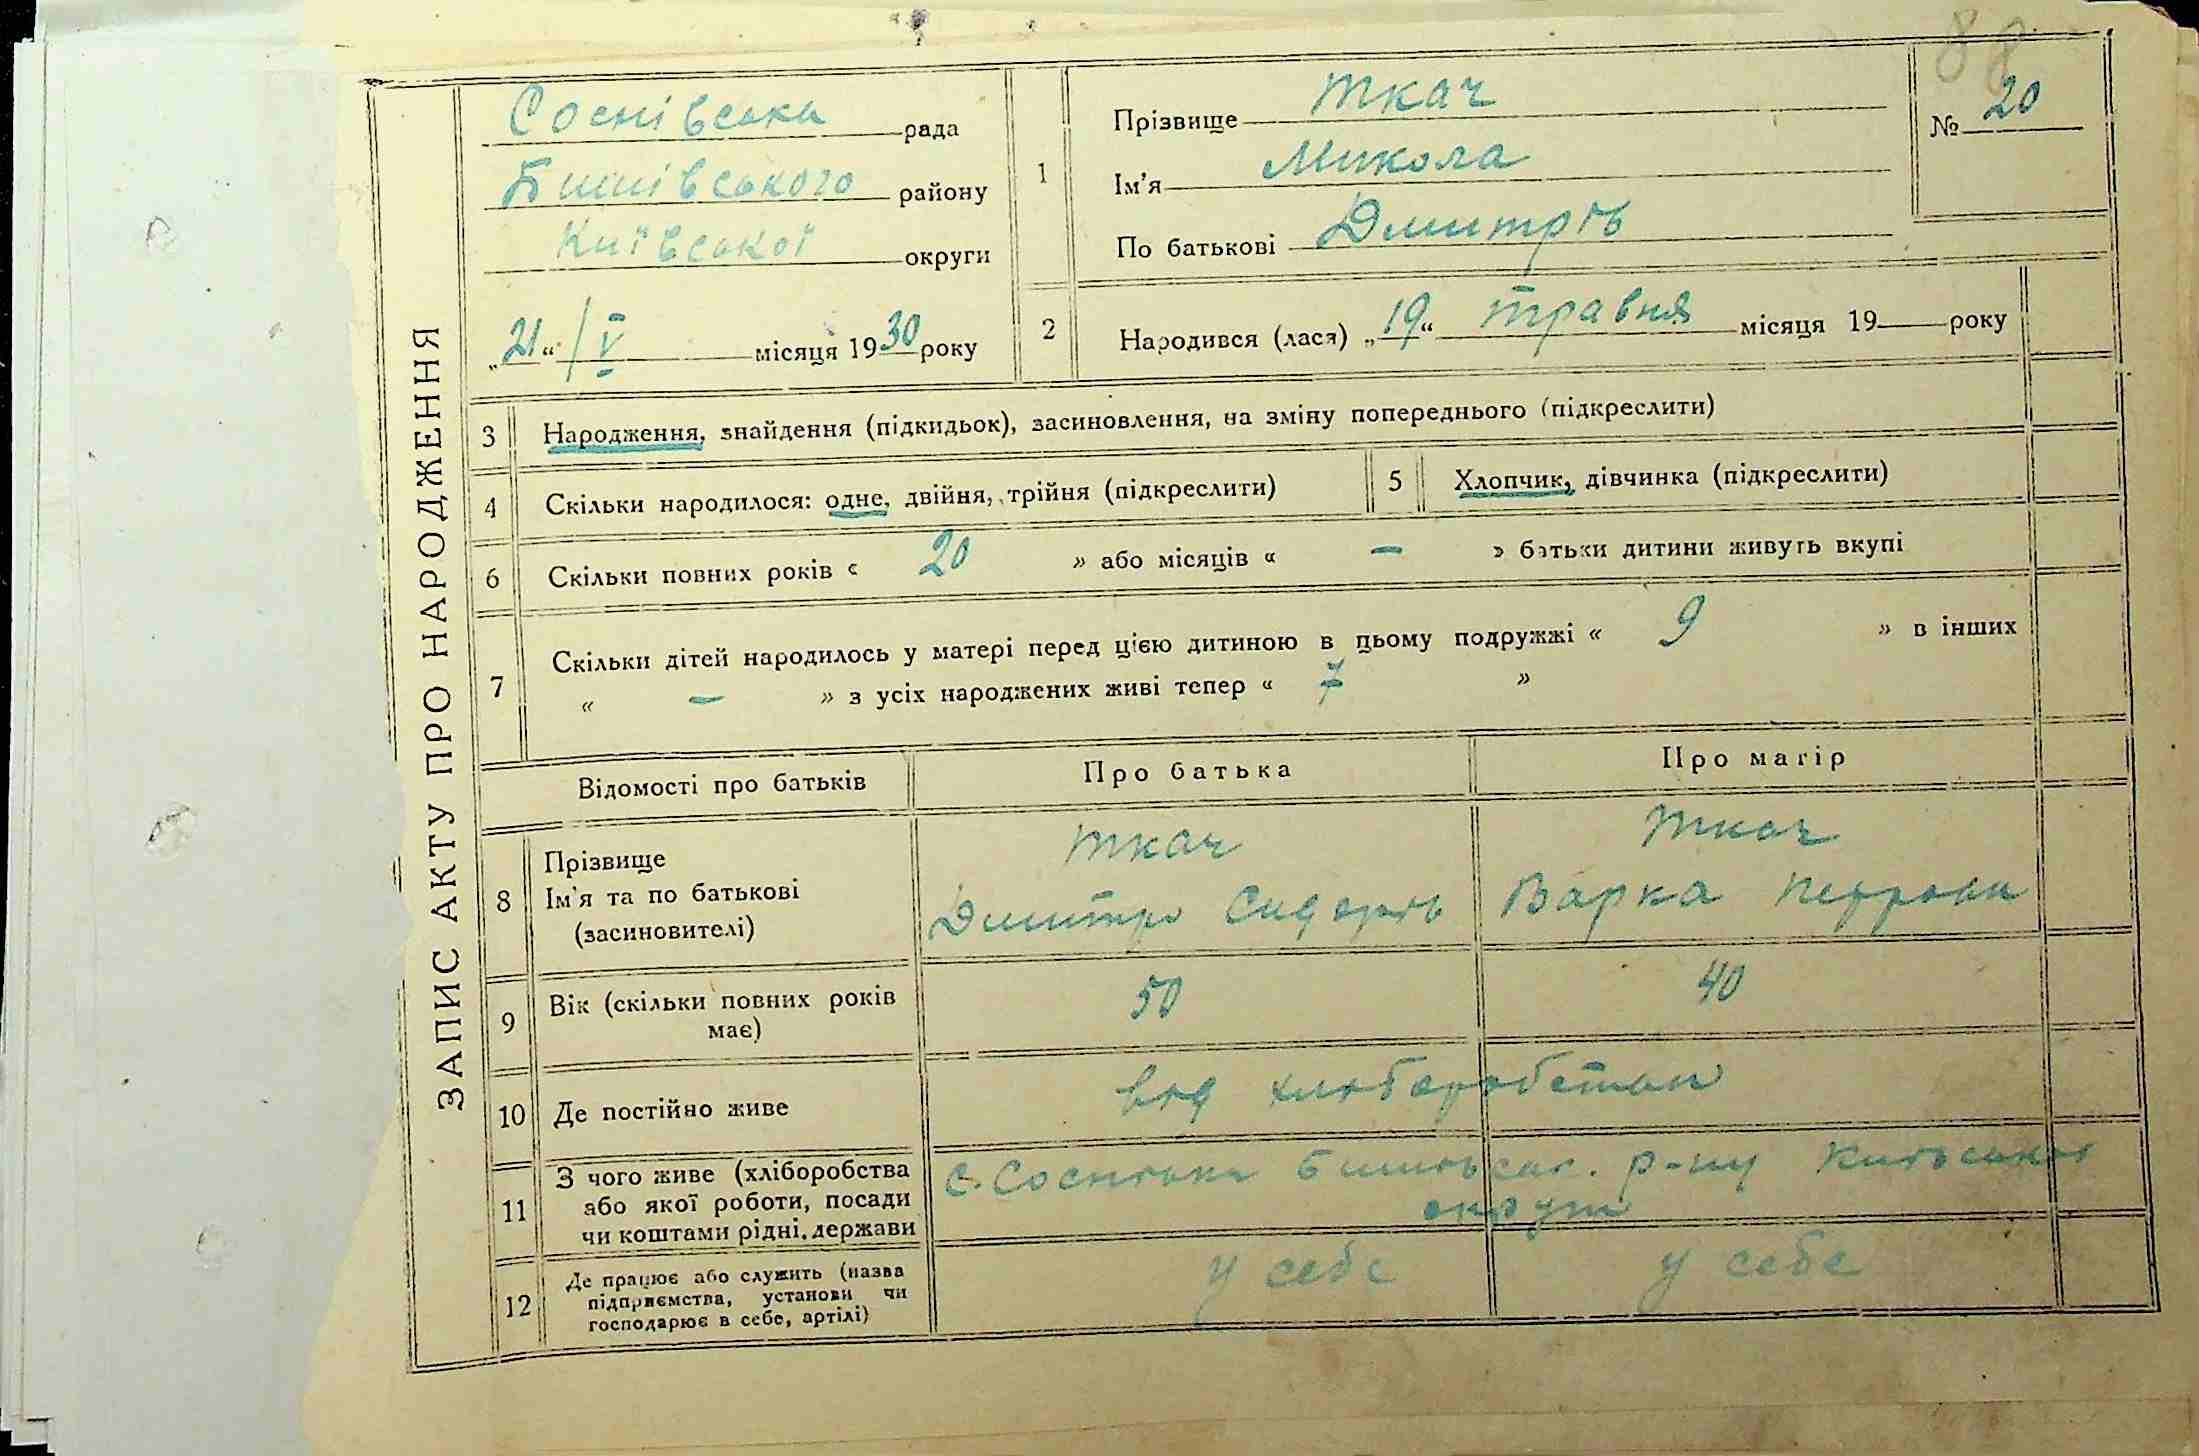 88
ЗАПИС АКТУ ПРО НАРОДЖЕННЯ
Соснівська рада
Бишівського району
Київської округи
„21“ / V місяця 1930 року
1
Прізвище Ткач
Ім'я Микола
По батькові Дмитрів
№ 20
2
Народився (лася) „19“ травня місяця 19 року
3 Народження, знайдення (підкидьок), засиновлення, на зміну попереднього (підкреслити)
4 Скільки народилося: одне, двійня, трійня (підкреслити)
5 Хлопчик, дівчинка (підкреслити)
6 Скільки повних років « 20 » або місяців « — » батьки дитини живуть вкупі
7 Скільки дітей народилось у матері перед цією дитиною в цьому подружжі « 9 » в інших
« — » з усіх народжених живі тепер « 7 »
Відомості про батьків Про батька Про матір
8 Прізвище Ткач Ткач
Ім'я та по батькові Дмитро Сидорів Варка Петрова
(засиновителі)
9 Вік (скільки повних років 50 40
має)
10 Де постійно живе від хліборобства
11 З чого живе (хліборобства с. Соснівка Бишівськ. р-ну Київської
або якої роботи, посади округи
чи коштами рідні, держави
12 Де працює або служить (назва у себе у себе
підприємства, установи чи
господарює в себе, артілі)